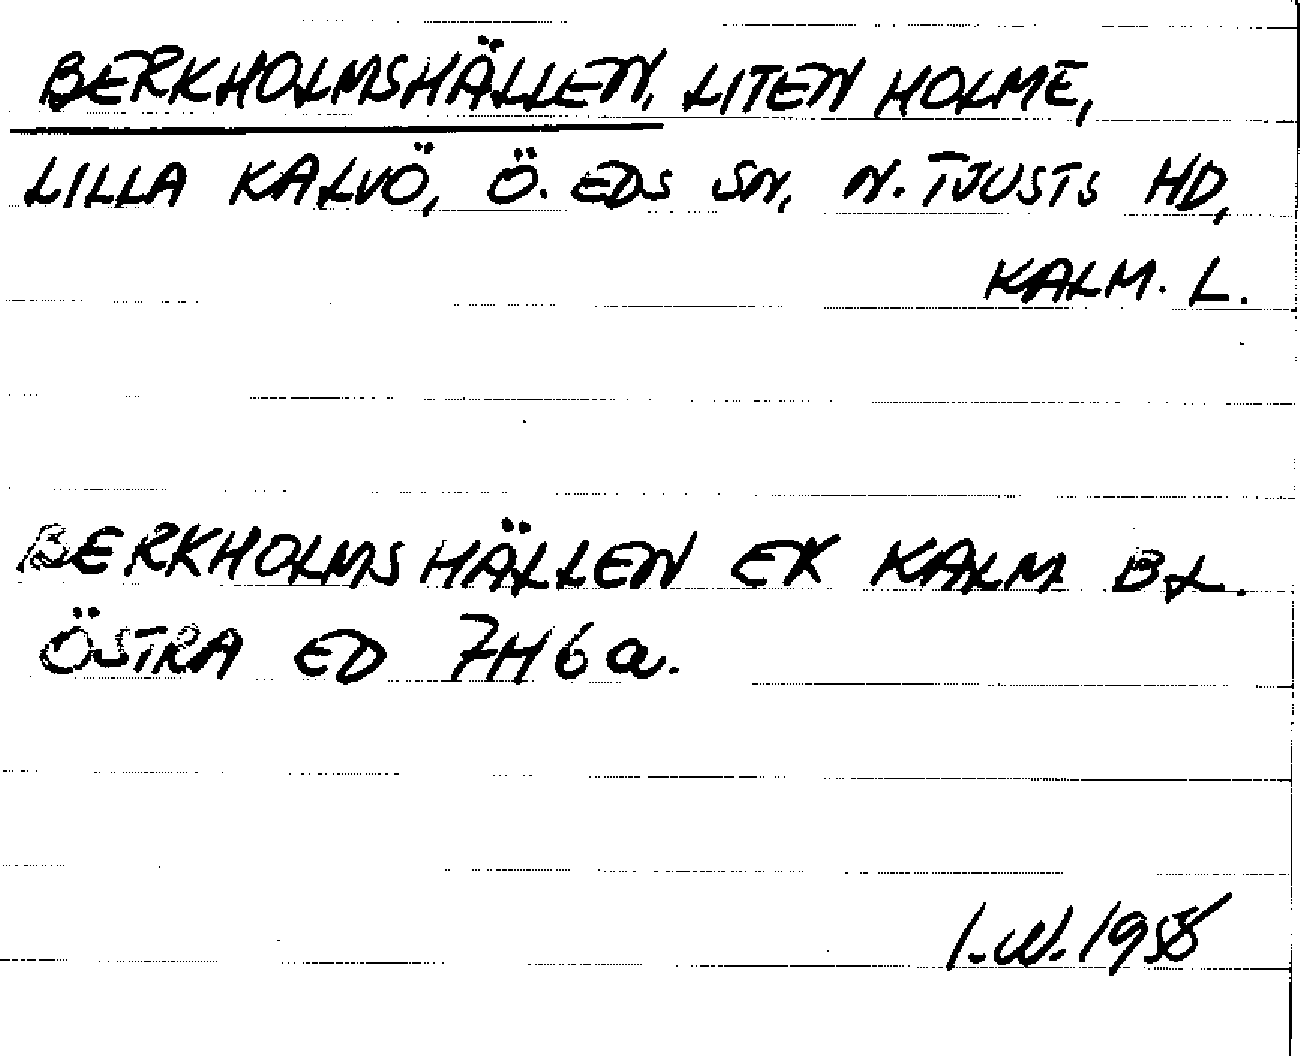 BERKHOLMSHÄLLEN, LITEN HOLME,
LILLA KALVÖ, Ö. EDS SN, N. TJUSTS HD,
KALM. L.
BERKHOLMSHÄLLEN EK KALM BL.
ÖSTRA ED 7H6a.
I.W.